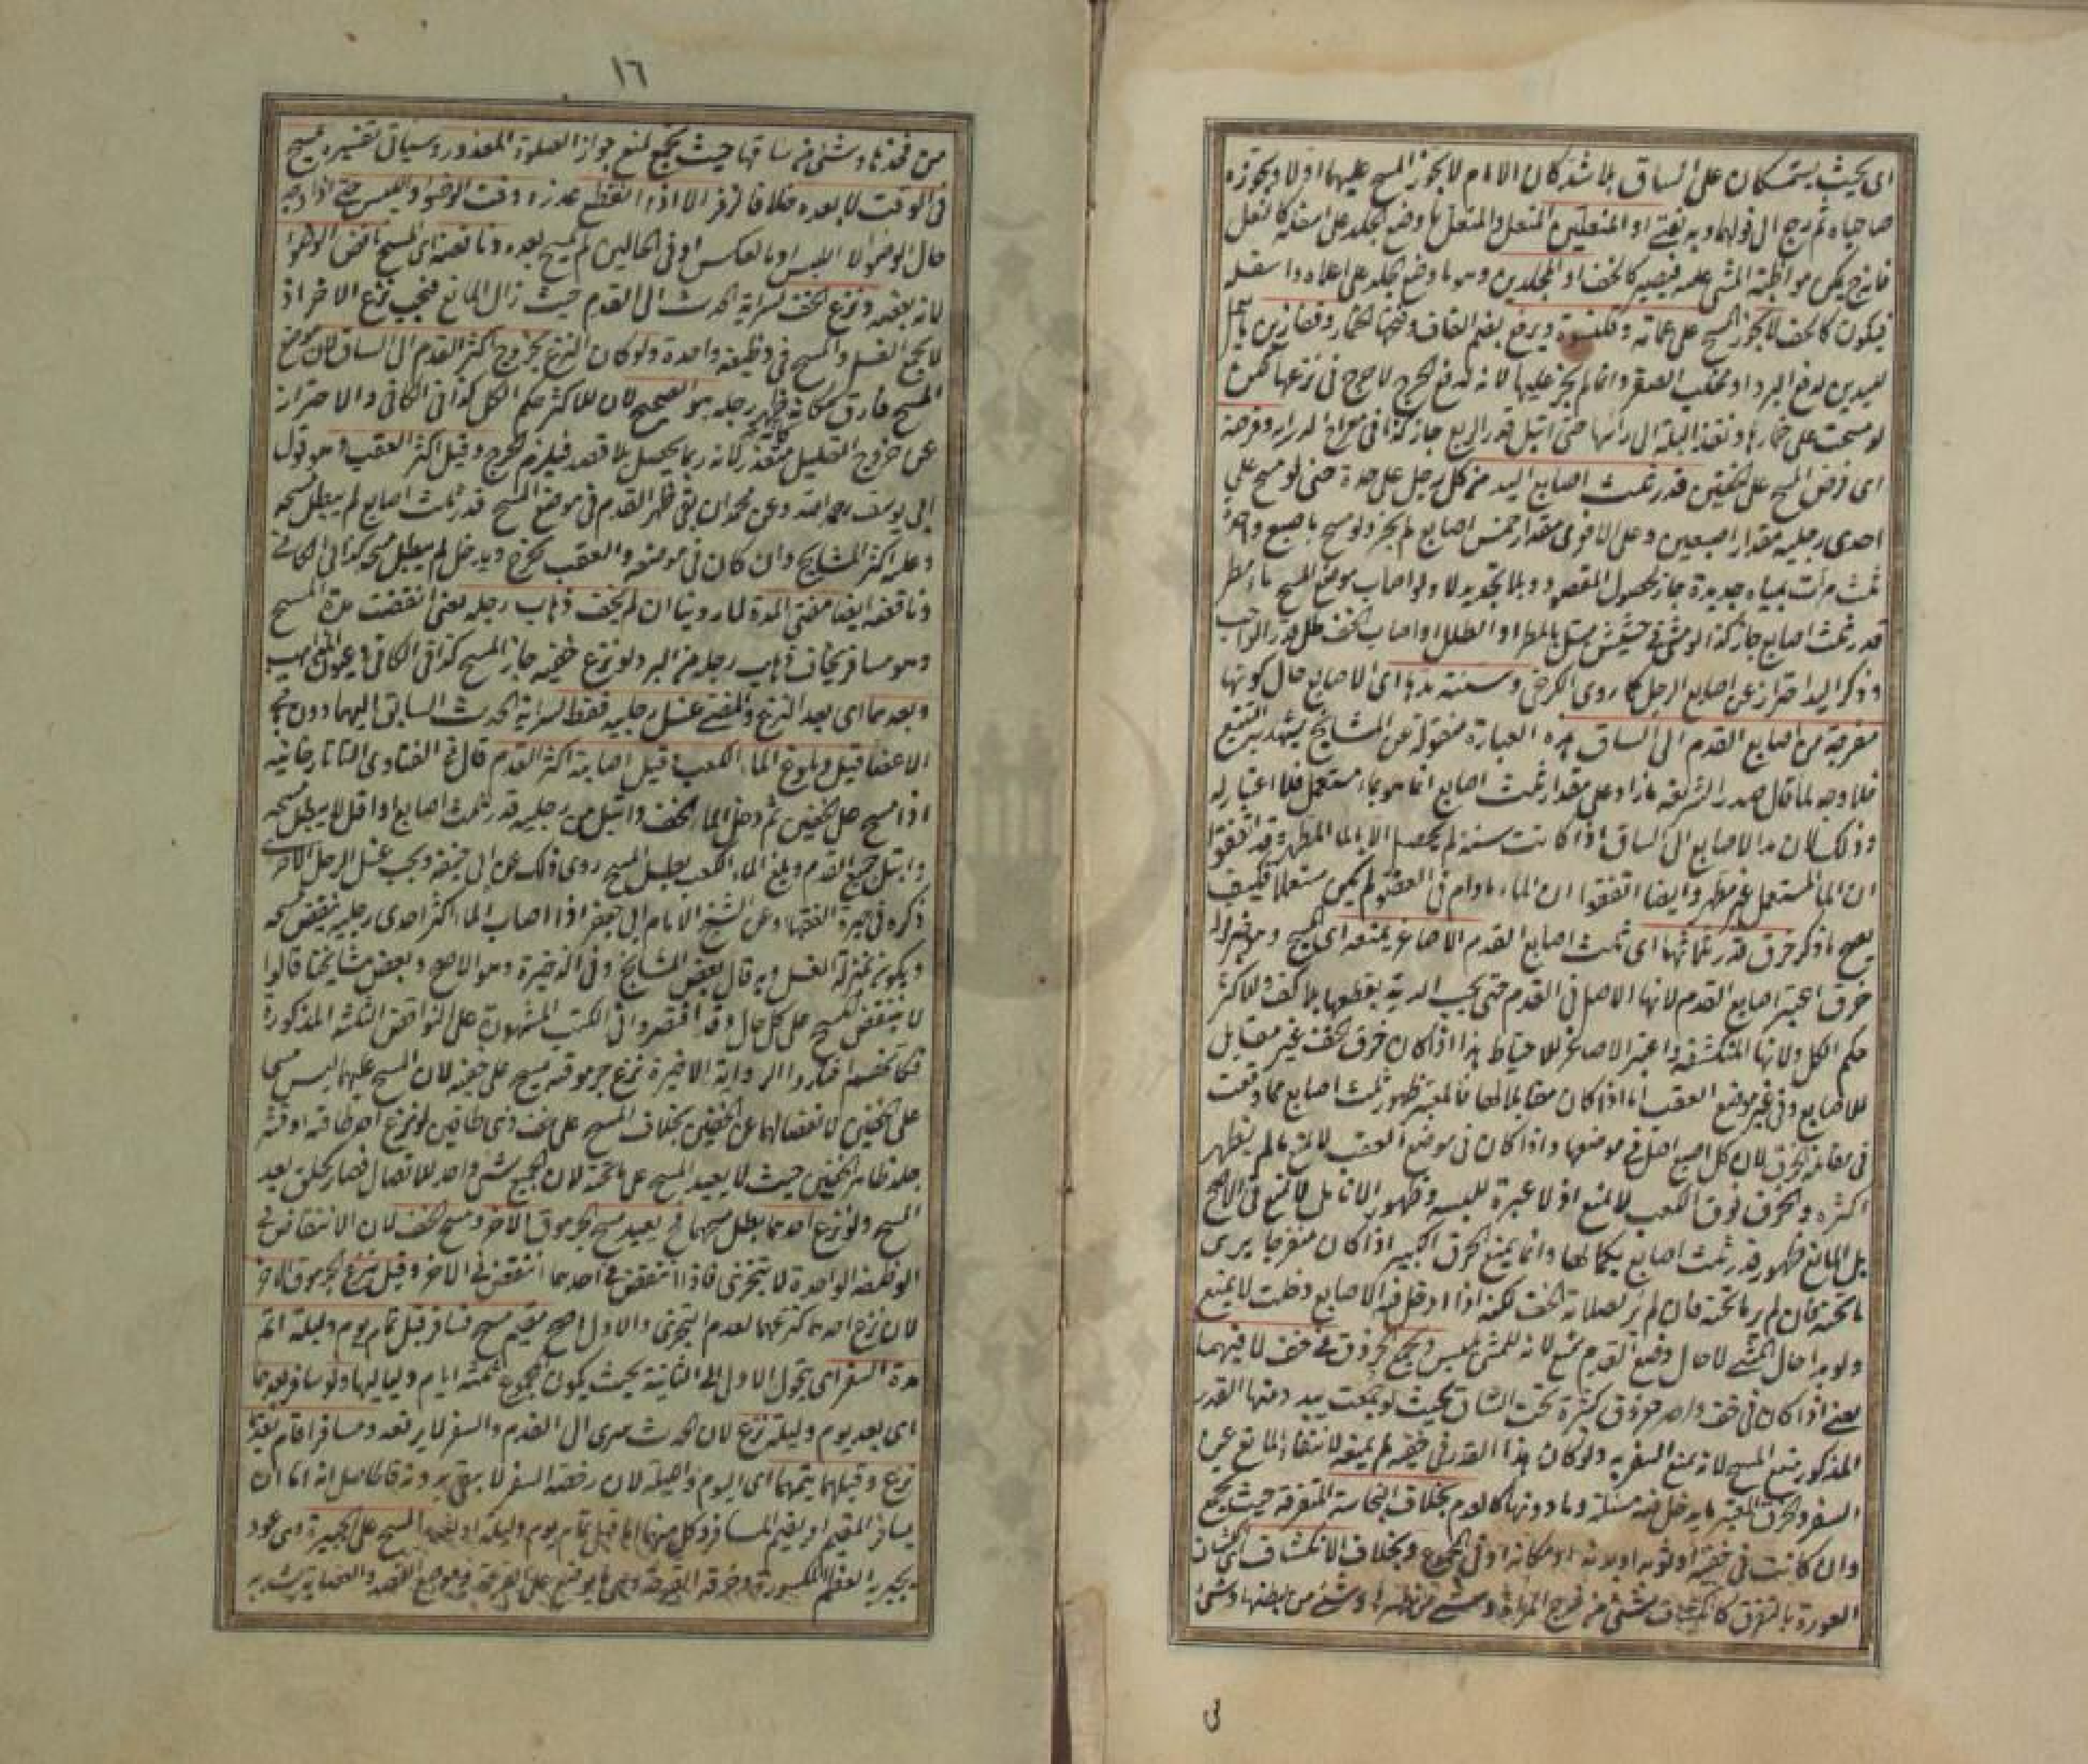 اى بحيث يستمسكان على الساق بلا شد كان الامام لا يجوز المسح عليهما اولا ويجوزه
صاحباه ثم رجع الى قولهما وبه يفتى او المنعلين المنعل والمنعل ما وضع الجلد على اسفله كالنعل
فانه ح يمكن مواظبة المشى عليه فيصير كالخف او المجلدين وهو ما وضع الجلد على اعلاه واسفله
فيكون كالخف لا يجوز المسح على عمامة وقلنسوة وبرقع بضم القاف وفتحها الخمار وقفازين ما يعمل
لليدين لدفع البرد او مخلب الصقر وانما لم يجز عليها لانه لدفع الحرج ولا حرج فى نزعها لكن
لو مسحت على خمارها ونفذت البلة الى رأسها حتى ابتل قدر الربع جاز كذا فى معراج الدراية وفرضه
اى فرض المسح على الخفين قدر ثلث اصابع اليد من كل رجل على حدة حتى لو مسح على
احدى رجليه مقدار اصبعين وعلى الاخرى مقدار خمس اصابع لم يجز ولو مسح باصبع واحد
ثلث مرات بمياه جديدة جاز لحصول المقصود وبلا تجديد لا ولو اصاب موضع المسح ماء مطر
قدر ثلث اصابع جاز كذا لو مشى فى حشيش مبتل بالمطر او الطل او اصاب الخف طل قدر الواجب
وذكر اليد احتراز عن اصابع الرجل كما روى الكرخى وسنته مدها اى الاصابع حال كونها
مفرجة من اصابع القدم الى الساق هذه العبارة منقولة عن المشايخ يشهد به التتبع
فلا وجه لما قال صدر الشريعة ما زاد على مقدار ثلث اصابع انما هو بماء مستعمل فلا اعتبار له
وذلك لان مد الاصابع الى الساق اذا كانت سنة لم يحصل الا بالماء المطهر وقد اتفقوا
ان الماء المستعمل غير مطهر وايضا اتفقوا ان الماء ما دام فى العضو لم يكن مستعملا فكيف
يصح ما ذكر خرق قدر ثلاثها اى ثلث اصابع القدم الاصاغر يمنعه اى المسح
خرق اعتبر اصابع القدم لانها الاصل فى القدم حتى يجب الدية بقطعها بلا كف وللاكثر
حكم الكل ولانها المنكشفة واعتبر الاصاغر للاحتياط هذا اذا كان خرق الخف غير مقابل
للاصابع وفى غير موضع العقب اما اذا كان مقابلا لها فالمعتبر ظهور ثلث اصابع مما وقعت
فى مقابلة الخرق لان كل اصبع اصل فى موضعها واذا كان فى موضع العقب لا يمنع ما لم يظهر
اكثره والخرق فوق الكعب لا يمنع اذ لا عبرة للبسه وظهور الانامل لا يمنع فى الاصح
بل المانع ظهور قدر ثلث اصابع بكمالها وانما يمنع الخرق الكبير اذا كان منفرجا يرى
ما تحته فان لم ير ما تحته فان لم ير لصلابة الخف لكنه اذا ادخل فيه الاصابع دخلت لا يمنع
ولو بدا حال المشى لا حال وضع القدم يمنع لانه للمشى يلبس ويجمع خروق فى خف لا فيهما
يعنى اذا كان فى خف واحد خروق كثيرة تحت الساق بحيث لو جمعت يبدو منها القدر
المذكور منع المسح لانه يمنع السفر به ولو كان هذا القدر فى خفيه لم يمنعه لانتفاء المانع عن
السفر والخرق المعتبر ما يدخل فيه مسلة وما دونها كالعدم بخلاف النجاسة المتفرقة حيث يجمع
وان كانت فى خفيه او ثوبه او بدنه او مكانه او فى المجموع وبخلاف الانكشاف اى انكشاف
العورة بالتفرق كانكشاف شئ من فرج المرأة وشئ من ظهرها وشئ من بطنها وشئ
١٦
من فخذها وشئ من ساقها حيث يجمع لمنع جواز الصلوة المعذور وسيأتى تفسيره يمسح
فى الوقت لا بعده خلافا لزفر الا اذا انقطع عذره وقت الوضوء واللبس حتى اذا وجد
حال الوضوء لا اللبس او بالعكس او فى الحالين لم يمسح بعده وناقضه اى المسح ناقض الوضوء
لانه بعضه ونزع الخف لسراية الحدث الى القدم حيث زال المانع فيجب نزع الاخر اذ
لا يجمع الغسل والمسح فى وظيفة واحدة ولو كان النزع بخروج اكثر القدم الى الساق لان موضع
المسح فارق مكانه فكانه ظهر رجله هو الصحيح لان للاكثر حكم الكل كذا فى الكافى والاحتراز
عن خروج القليل متعذر لانه ربما يحصل بلا قصد فيلزم الحرج وقيل اكثر العقب هو قول
ابى يوسف رحمه الله وعن محمد ان بقى ظهر القدم فى موضع المسح قدر ثلث اصابع لم يبطل مسحه
وعليه اكثر المشايخ وان كان فى موضعه والعقب يخرج ويدخل لم يبطل مسحه كذا فى الكافى
وناقضه ايضا مضى المدة لما روينا ان لم يخف ذهاب رجله يعنى انقضت مدة المسح
وهو مسافر يخاف ذهاب رجله من البرد لو نزع خفيه جاز المسح كذا فى الكافى وعيون المذاهب
وبعدهما اى بعد النزع والمضى غسل رجليه فقط لسراية الحدث السابق اليهما دون باقى
الاعضاء قيل وبلوغ الماء الكعب وقيل اصابته اكثر القدم قال فى الفتاوى التاتارخانية
اذا مسح على الخفين ثم دخل الماء الخف وابتل من رجليه قدر ثلث اصابع او اقل لا يبطل مسحه
وابتل جميع القدم وبلغ الماء الكعب بطل المسح روى ذلك عن ابى حنيفة ويجب غسل الرجل الاخرى
ذكره فى حيرة الفقهاء وعن الشيخ الامام ابى جعفر اذا اصاب الماء اكثر احدى رجليه ينقض مسحه
ويكون بمنزلة الغسل وبه قال بعض المشايخ وفى الذخيرة وهو الاصح وبعض مشايخنا قالوا
لا ينتقض المسح على كل حال وقد اقتصروا فى الكتب المشهورة على النواقض الثلثة المذكورة
فكانهم اختاروا الرواية الاخيرة نزع جرموقيه مسح على خفيه لان المسح عليهما ليس مسحا
على الخفين لانفصالهما عن الخفين بخلاف المسح على خف ذى طاقين لو نزع احد طاقيه او قشر
جلد ظاهر الخفين حيث لا يعيد المسح على ما تحته لان الجميع شئ واحد للاتصال فصار كحلق بعد
المسح ولو نزع احدهما بطل مسحهما فح يعيد مسح الجرموق الاخر ومسح الخف لان الانتقاض فى
الوظيفة الواحدة لا يتجزى فاذا انتقض فى احدهما انتقض فى الاخر وقيل ينزع الجرموق الاخر
لان نزع احدهما كنزعهما لعدم التجزى والاول اصح مقيم مسح فسافر قبل تمام يوم وليلة اتم
مدة السفر اى يتحول الاولى الى الثانية بحيث يكون المجموع ثلثة ايام ولياليها ولو سافر بعدهما
اى بعد يوم وليلة نزع لان الحدث سرى الى القدم والسفر لا يرفعه ومسافر اقام بعدهما
نزع وقبلهما يتمهما اى اليوم والليلة لان رخصة السفر لا يبقى بدونه فالحاصل انه اما ان
يسافر المقيم او يقيم المسافر وكل منهما اما قبل تمام يوم وليلة او بعده المسح على الجبيرة وهى عود
يجبر به العظم المكسورة وخرقة القرحة وهى ما يوضع على القرحة وموضع الفصد والعصابة يشد به
فى